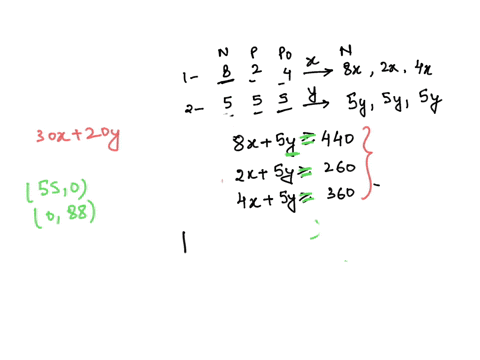 N P Po x N
1- 8 2 4 → 8x, 2x, 4x
2- 5 5 5 y → 5y, 5y, 5y
30x+20y
8x+5y ≥ 440
2x+5y ≥ 260
4x+5y ≥ 360
(55,0)
(0,88)